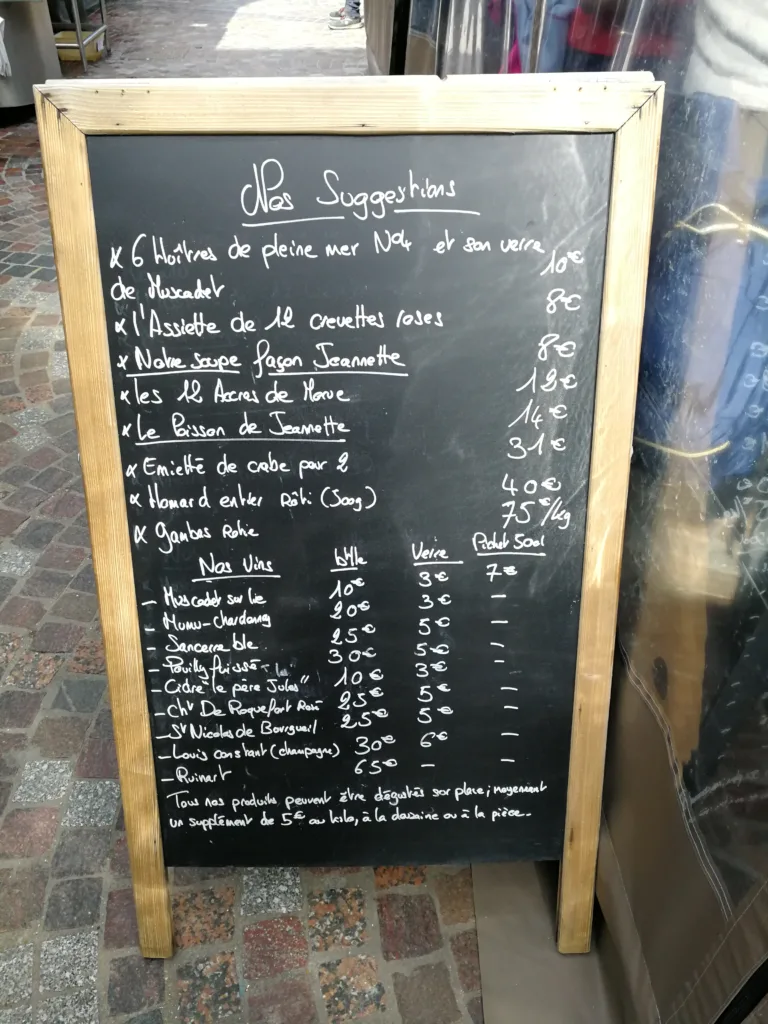 Nos Suggestions
x 6 Huîtres de pleine mer No4 et son verre 10€
de Muscadet
x l'Assiette de 12 crevettes roses 8€
x Notre soupe façon Jeannette 8€
x les 12 Accras de Morue 12€
x Le Poisson de Jeannette 14€
x Emietté de crabe pour 2 31€
x Homard entier Rôti (500g) 40€
x gambas Rotie 75€/kg
Nos Vins btlle Verre Pichet 50cl
- Muscadet sur lie 10€ 3€ 7€
- Mumu-chardonnay 20€ 3€ -
- Sancerre blc 25€ 5€ -
- Pouilly fuissé 30€ 5€ -
- Cidre "le père Jules" 10€ 3€ -
- Chtᵘ De Roquefort Rosé 25€ 5€ -
- St Nicolas de Bourgueil 25€ 5€ -
- Louis constant (champagne) 30€ 6€ -
- Ruinart 65€ - -
Tous nos produits peuvent être dégustés sur place ; moyennant
un supplément de 5€ au kilo, à la douzaine ou à la pièce.